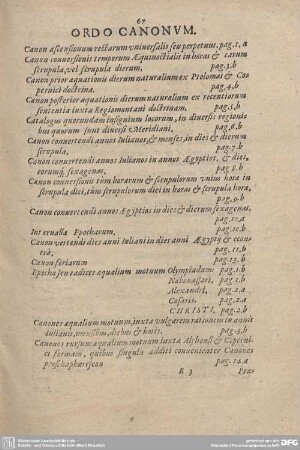 67
ORDO CANONVM.
Canon ascensionum rectarum vniuersalis seu perpetuus, pag. 1, a
Canon conuersionis temporum Æquinoctialis in horas & earum
scrupula, vel scrupula dierum, pag. 3. b
Canon prior æquationis dierum naturalium ex Ptolomæi & Co⸗
pernici doctrina. pag. 4. b
Canon posterior æquationis dierum naturalium ex recentiorum
sententia iuxta Regiomontani doctrinam. pag. 5. b
Catalogus quorundam insignium locorum, in diuersis regioni⸗
bus quorum sunt diuersi Meridiani, pag. 6. b
Canon conuertendi annos Iulianos, & menses, in dies & dierum
scrupula, pag. 7. b
Canon conuertendi annos Iulianos in annos Ægyptios, & dies,
eorumq́; sexagenas, pag 8. b
Canon conuersionis tum horarum & scrupulorum vnius horæ in
scrupula diei, tum scrupulorum diei in horas & scrupula horæ,
pag. 9. b
Canon conuertendi annos Ægyptios in dies & dierum sexagenas.
pag. 10. a
Interualla Epocharum, pag. 10. b
Canon vertendi dies anni Iuliani in dies anni Ægyptij & econ⸗
tra, pag. 11. b
Canon feriarum pag. 13. b
Epochæ seu radices æqualium motuum Olympiadum pag. 1. b
Nabonassari. pag. 1. b
Alexandri, pag. 2. a
Cæsaris. pag. 2. a
CHRISTI, pag. 2. b
Canones æqualium motuum, iuxta vulgarem rationem in annis
Iulianis, mensibus, diebus & horis. pag. 3. b
Canones rursum æqualium motuum iuxta Alphonsi & Coperni⸗
ci formam, quibus singulis additi conuenienter Canones
prosthaphæreseon pag. 14. a
R 3 Præ